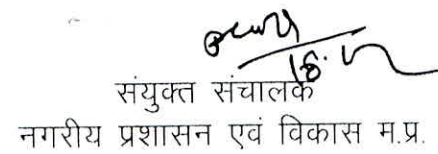 संयुक्त संचालक
नगरीय प्रशासन एवं विकास म.प्र.